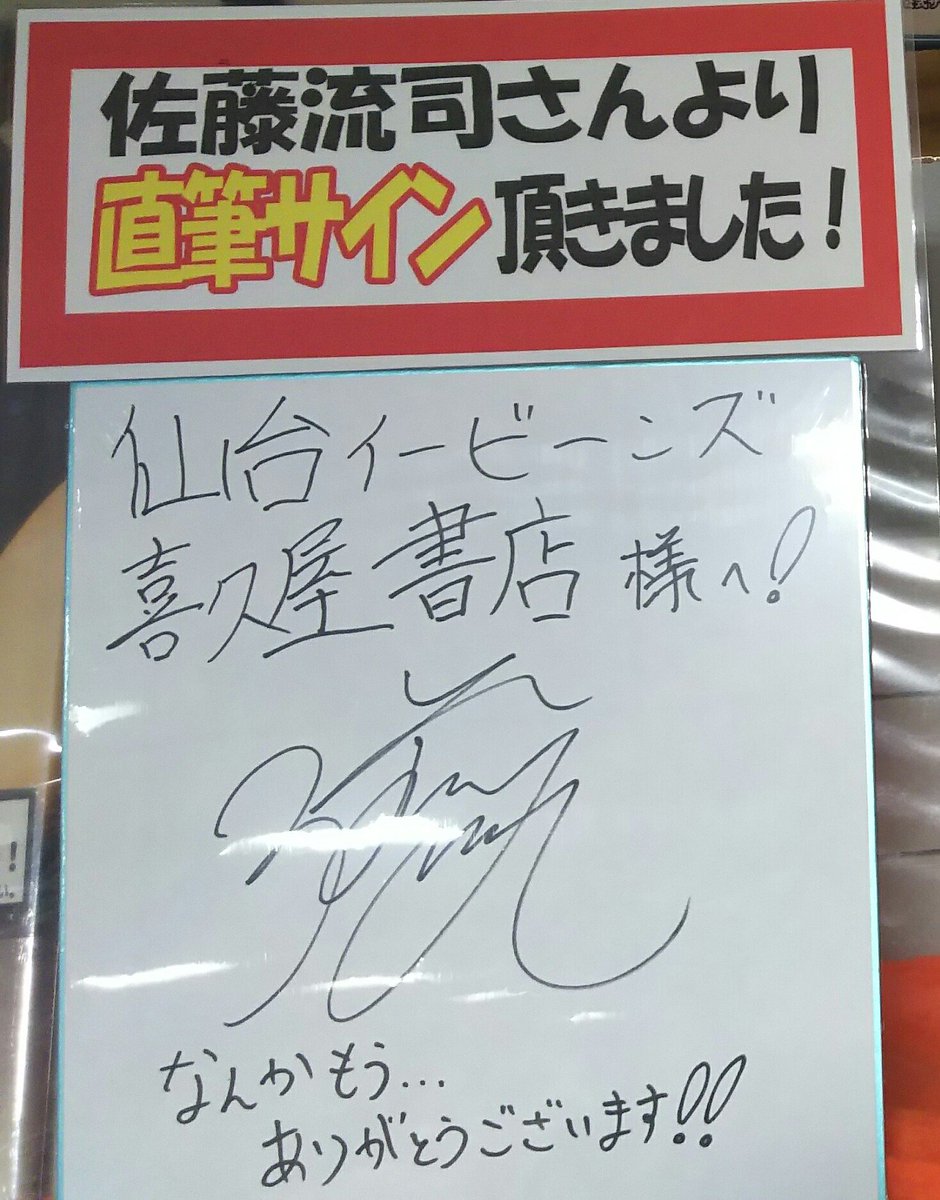 佐藤流司さんより
直筆サイン頂きました!
仙台イービーンズ
喜久屋書店様へ!
なんかもう...
ありがとうございます!!